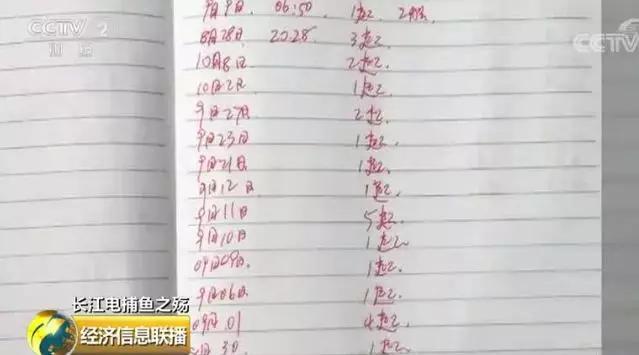 CCTV 2
财经
CCTV
9月9日 06:50 1起
8月28日 20:28 3起
10月8日 2起
10月2日 1起
9月27日 2起
9月23日 1起
9月21日 1起
9月12日 1起
9月11日 5起
9月10日 1起
09月09日 1起
9月06日 1起
09月01 4起
月30 1起
长江电捕鱼之殇
经济信息联播